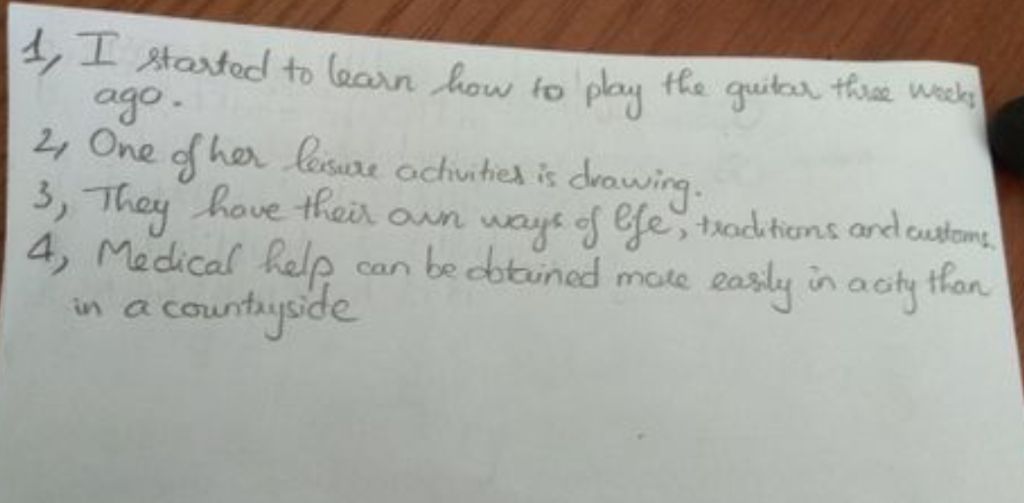 1, I started to learn how to play the guitar three weeks
ago.
2, One of her leisure activities is drawing.
3, They have their own ways of life, traditions and customs.
4, Medical help can be obtained more easily in a city than
in a countryside